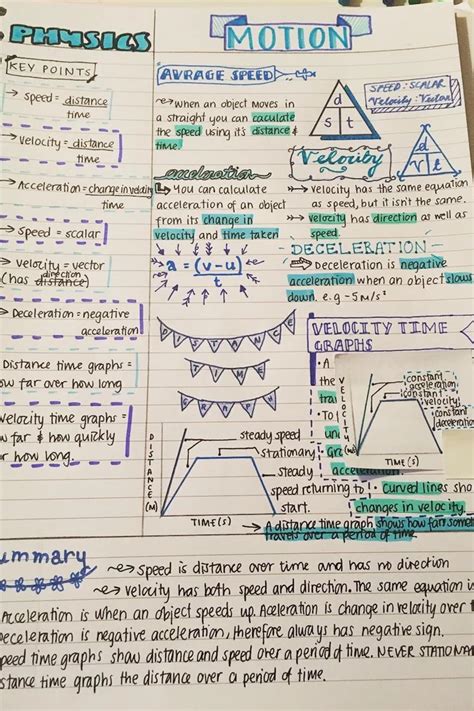 PHYSICS
MOTION
KEY POINTS
→ speed = distance
time
→ velocity = distance
time
→ Acceleration = change in velocity
time
→ speed = scalar
→ velocity = vector
(has direction distance)
→ Deceleration = negative
acceleration
Distance time graphs =
how far over how long
Velocity time graphs =
how far & how quickly
or how long.
AVRAGE SPEED
when an object moves in
a straight you can caculate
the speed using it's distance &
time.
d
s t
SPEED: SCALAR
Velocity: Vector
acceleration
You can calculate
acceleration of an object
from its change in
velocity and time taken
a = (v-u)
t
Velority
d
v t
velocity has the same equation
as speed, but it isn't the same.
velocity has direction as well as
speed.
DECELERATION
Deceleration is negative
acceleration when an object slows
down. e.g -5m/s²
DISTANCE
TIME
GRAPH
DISTANCE (M)
steady speed
stationary
steady
speed returning to
start.
TIME(S)
VELOCITY TIME
GRAPHS
• A
the
• To
acceleration.
VELOCITY
constant
acceleration
constant
velocity
constant
deceleration
TIME(S)
• Curved lines sho
changes in velocity.
→ A distance time graph shows how far something
travels over a period of time.
summary
speed is distance over time and has no direction
velocity has both speed and direction. The same equation
Acceleration is when an object speeds up. Aceleration is change in velocity over
Deceleration is negative acceleration, therefore always has negative sign.
speed time graphs show distance and speed over a period of time. NEVER STATIONAR
distance time graphs the distance over a period of time.